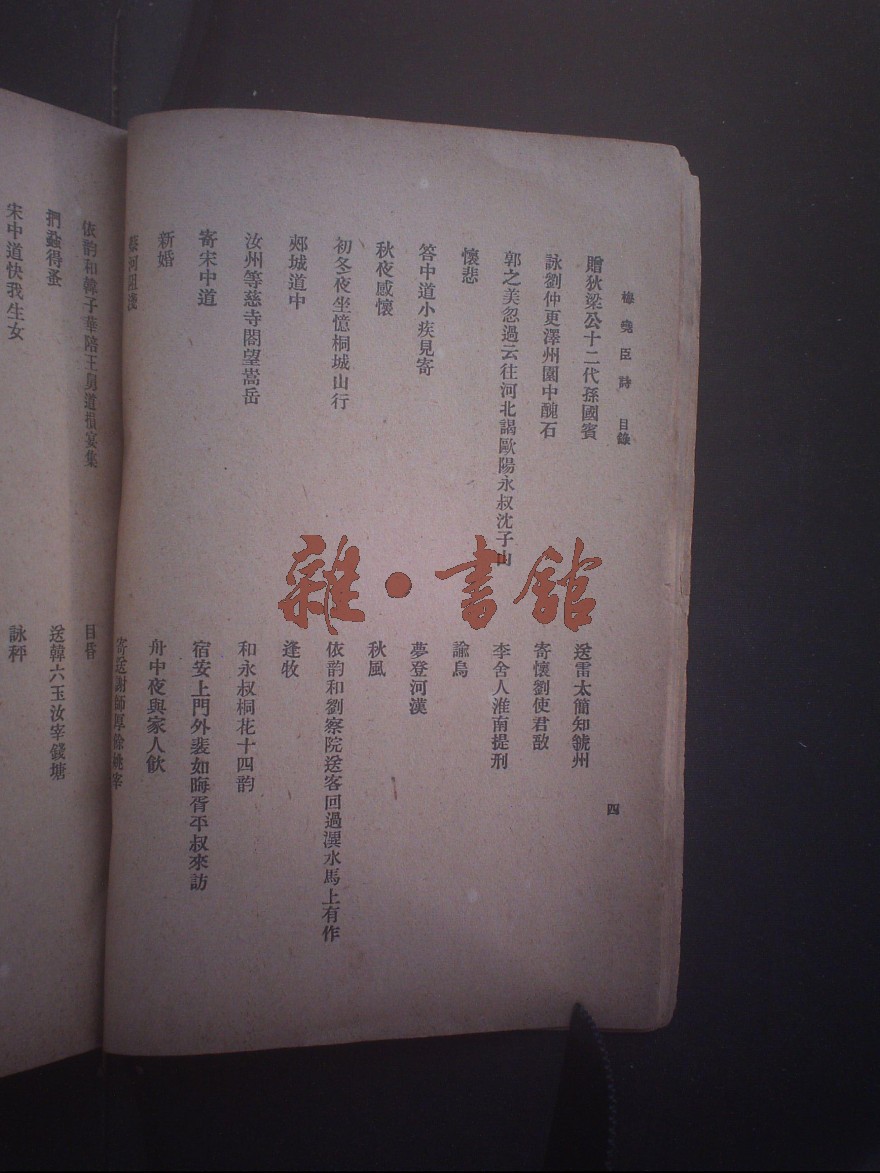 梅堯臣詩 目錄 四
贈狄梁公十二代孫國賓
送雷太簡知虢州
詠劉仲更澤州園中醜石
寄懷劉使君敞
郭之美忽過云往河北謁歐陽永叔沈子山
李舍人淮南提刑
懷悲
諭烏
答中道小疾見寄
夢登河漢
秋夜感懷
秋風
初冬夜坐憶桐城山行
依韵和劉察院送客回過溳水馬上有作
郟城道中
逢牧
汝州等慈寺閣望嵩岳
和永叔桐花十四韵
寄宋中道
宿安上門外裴如晦胥平叔來訪
新婚
舟中夜與家人飲
蔡河阻淺
寄送謝師厚餘姚宰
依韵和韓子華陪王舅道損宴集
目昏
捫蝨得蚤
送韓六玉汝宰錢塘
宋中道快我生女
詠秤
雜·書館